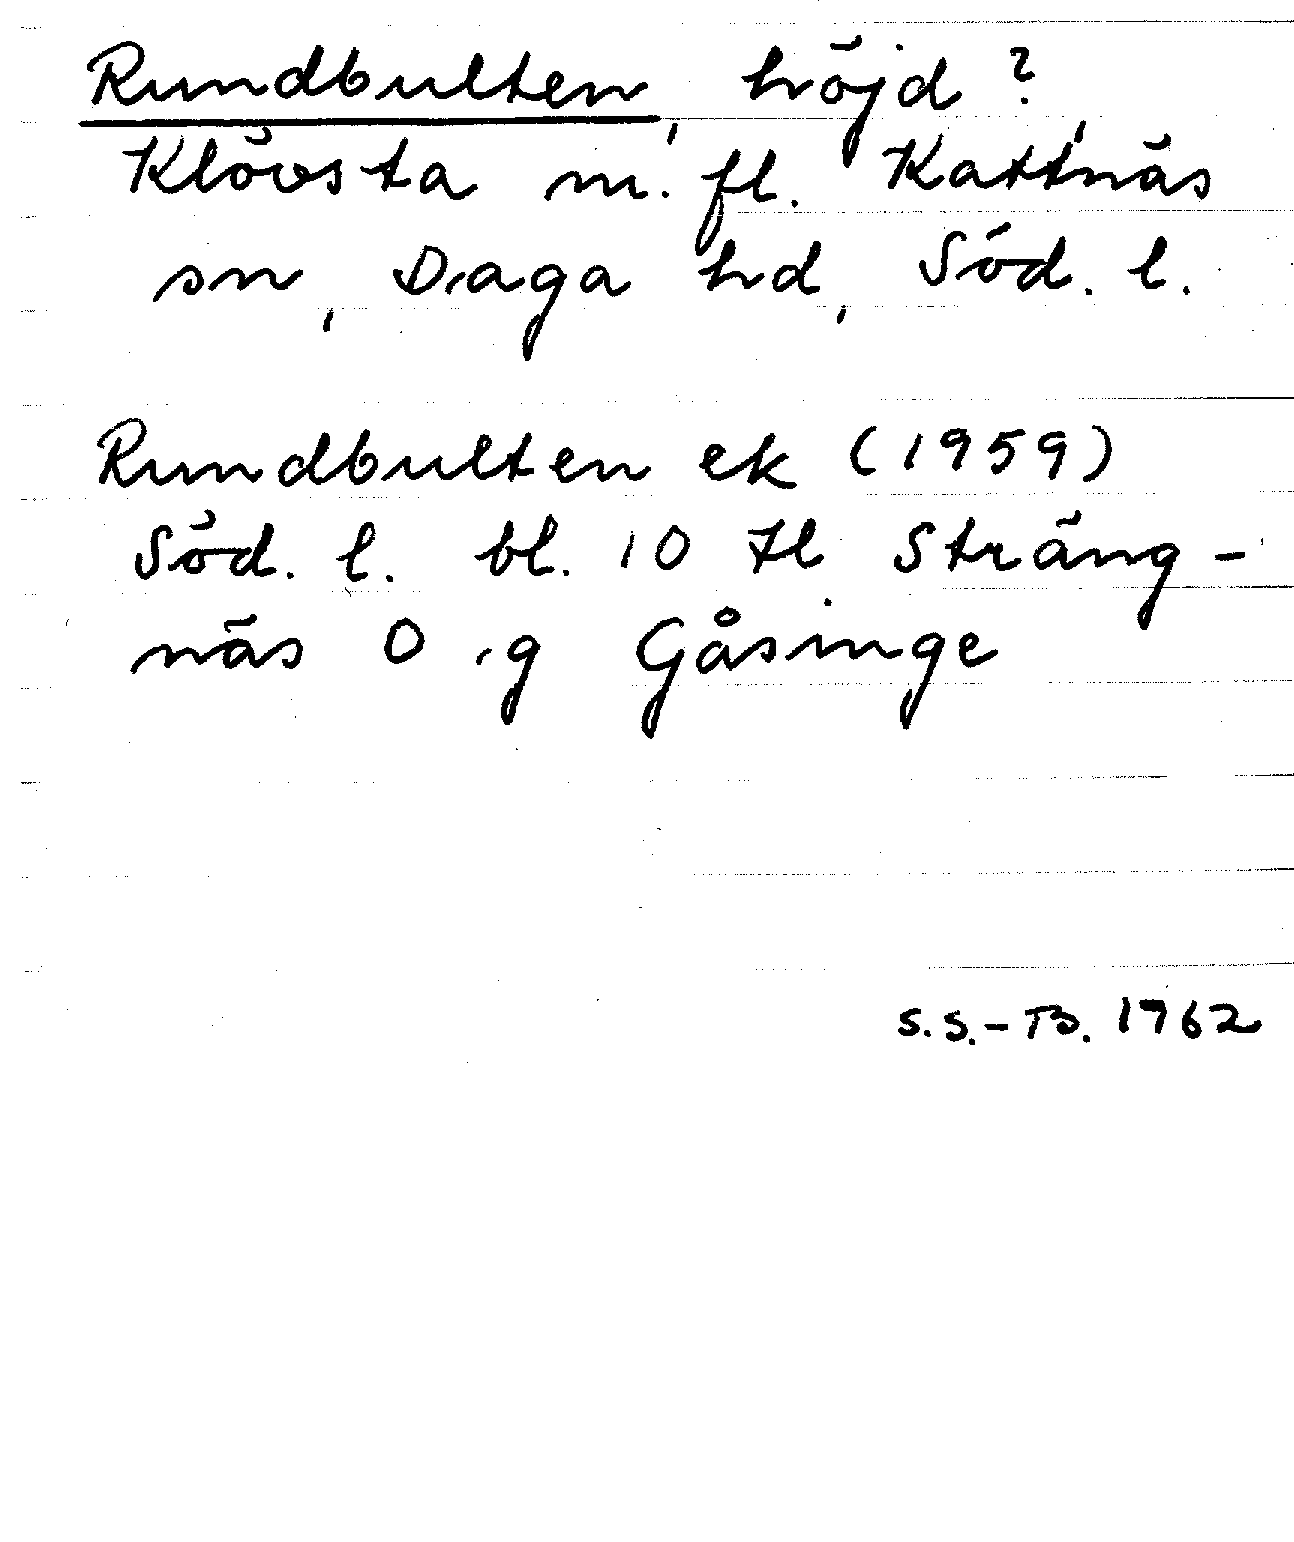 Rundbulten, höjd?,
Klövsta m. fl. Kattnäs
sn, Daga hd, Söd. l.
Rundbulten ek (1959)
Söd. l. bl. 10 tl Sträng-
näs O .g Gåsinge
S.S.-B. 1962